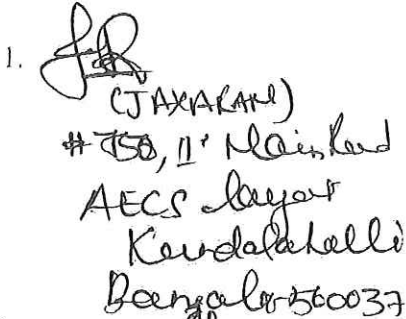 1.
(JAYARAM)
# 750, II' Main Road
AECS layout
Kundalahalli
Bangalore-560037